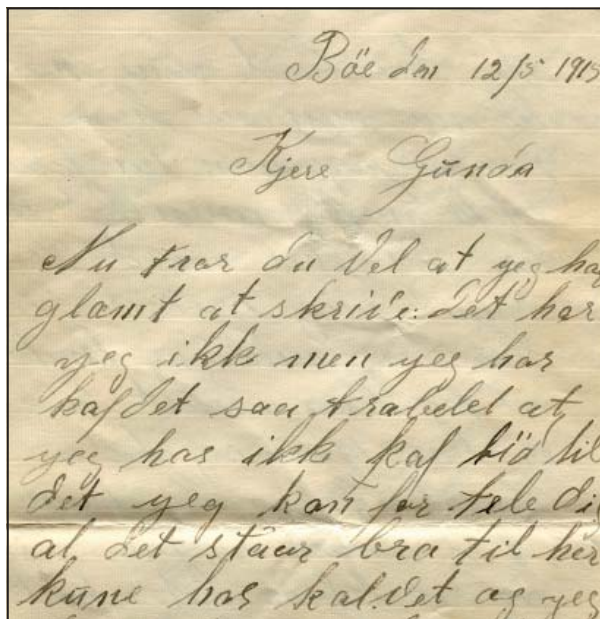 Böe den 12/5 1915
Kjere Gunda
Nu tror du Vel at yeg har
glamt at skrive: det har
yeg ikk men yeg har
hafdet saa trabelet at
yeg has ikk haf tid til
det yeg kan for tele dig
at det staar bra til her
kune has haldet og yeg